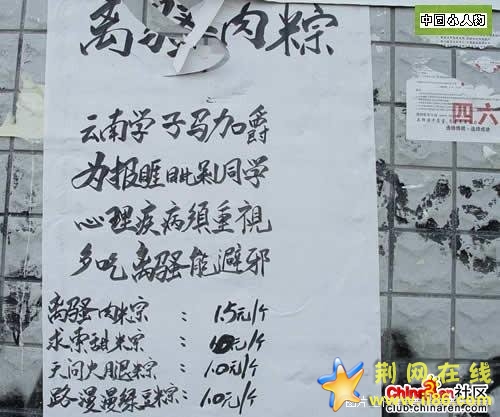 中国小人物
离骚肉粽
四六
云南学子马加爵
为报睚眦剁同学
心理疾病須重視
多吃离骚能避邪
离骚肉粽 : 1.5元/个
求索甜粽 : 元/个
天问火腿粽 : 1.0元/个
路漫漫绿豆粽: 1.0元/个
荆网在线
图片
ChinaRen社区
club.chinaren.com